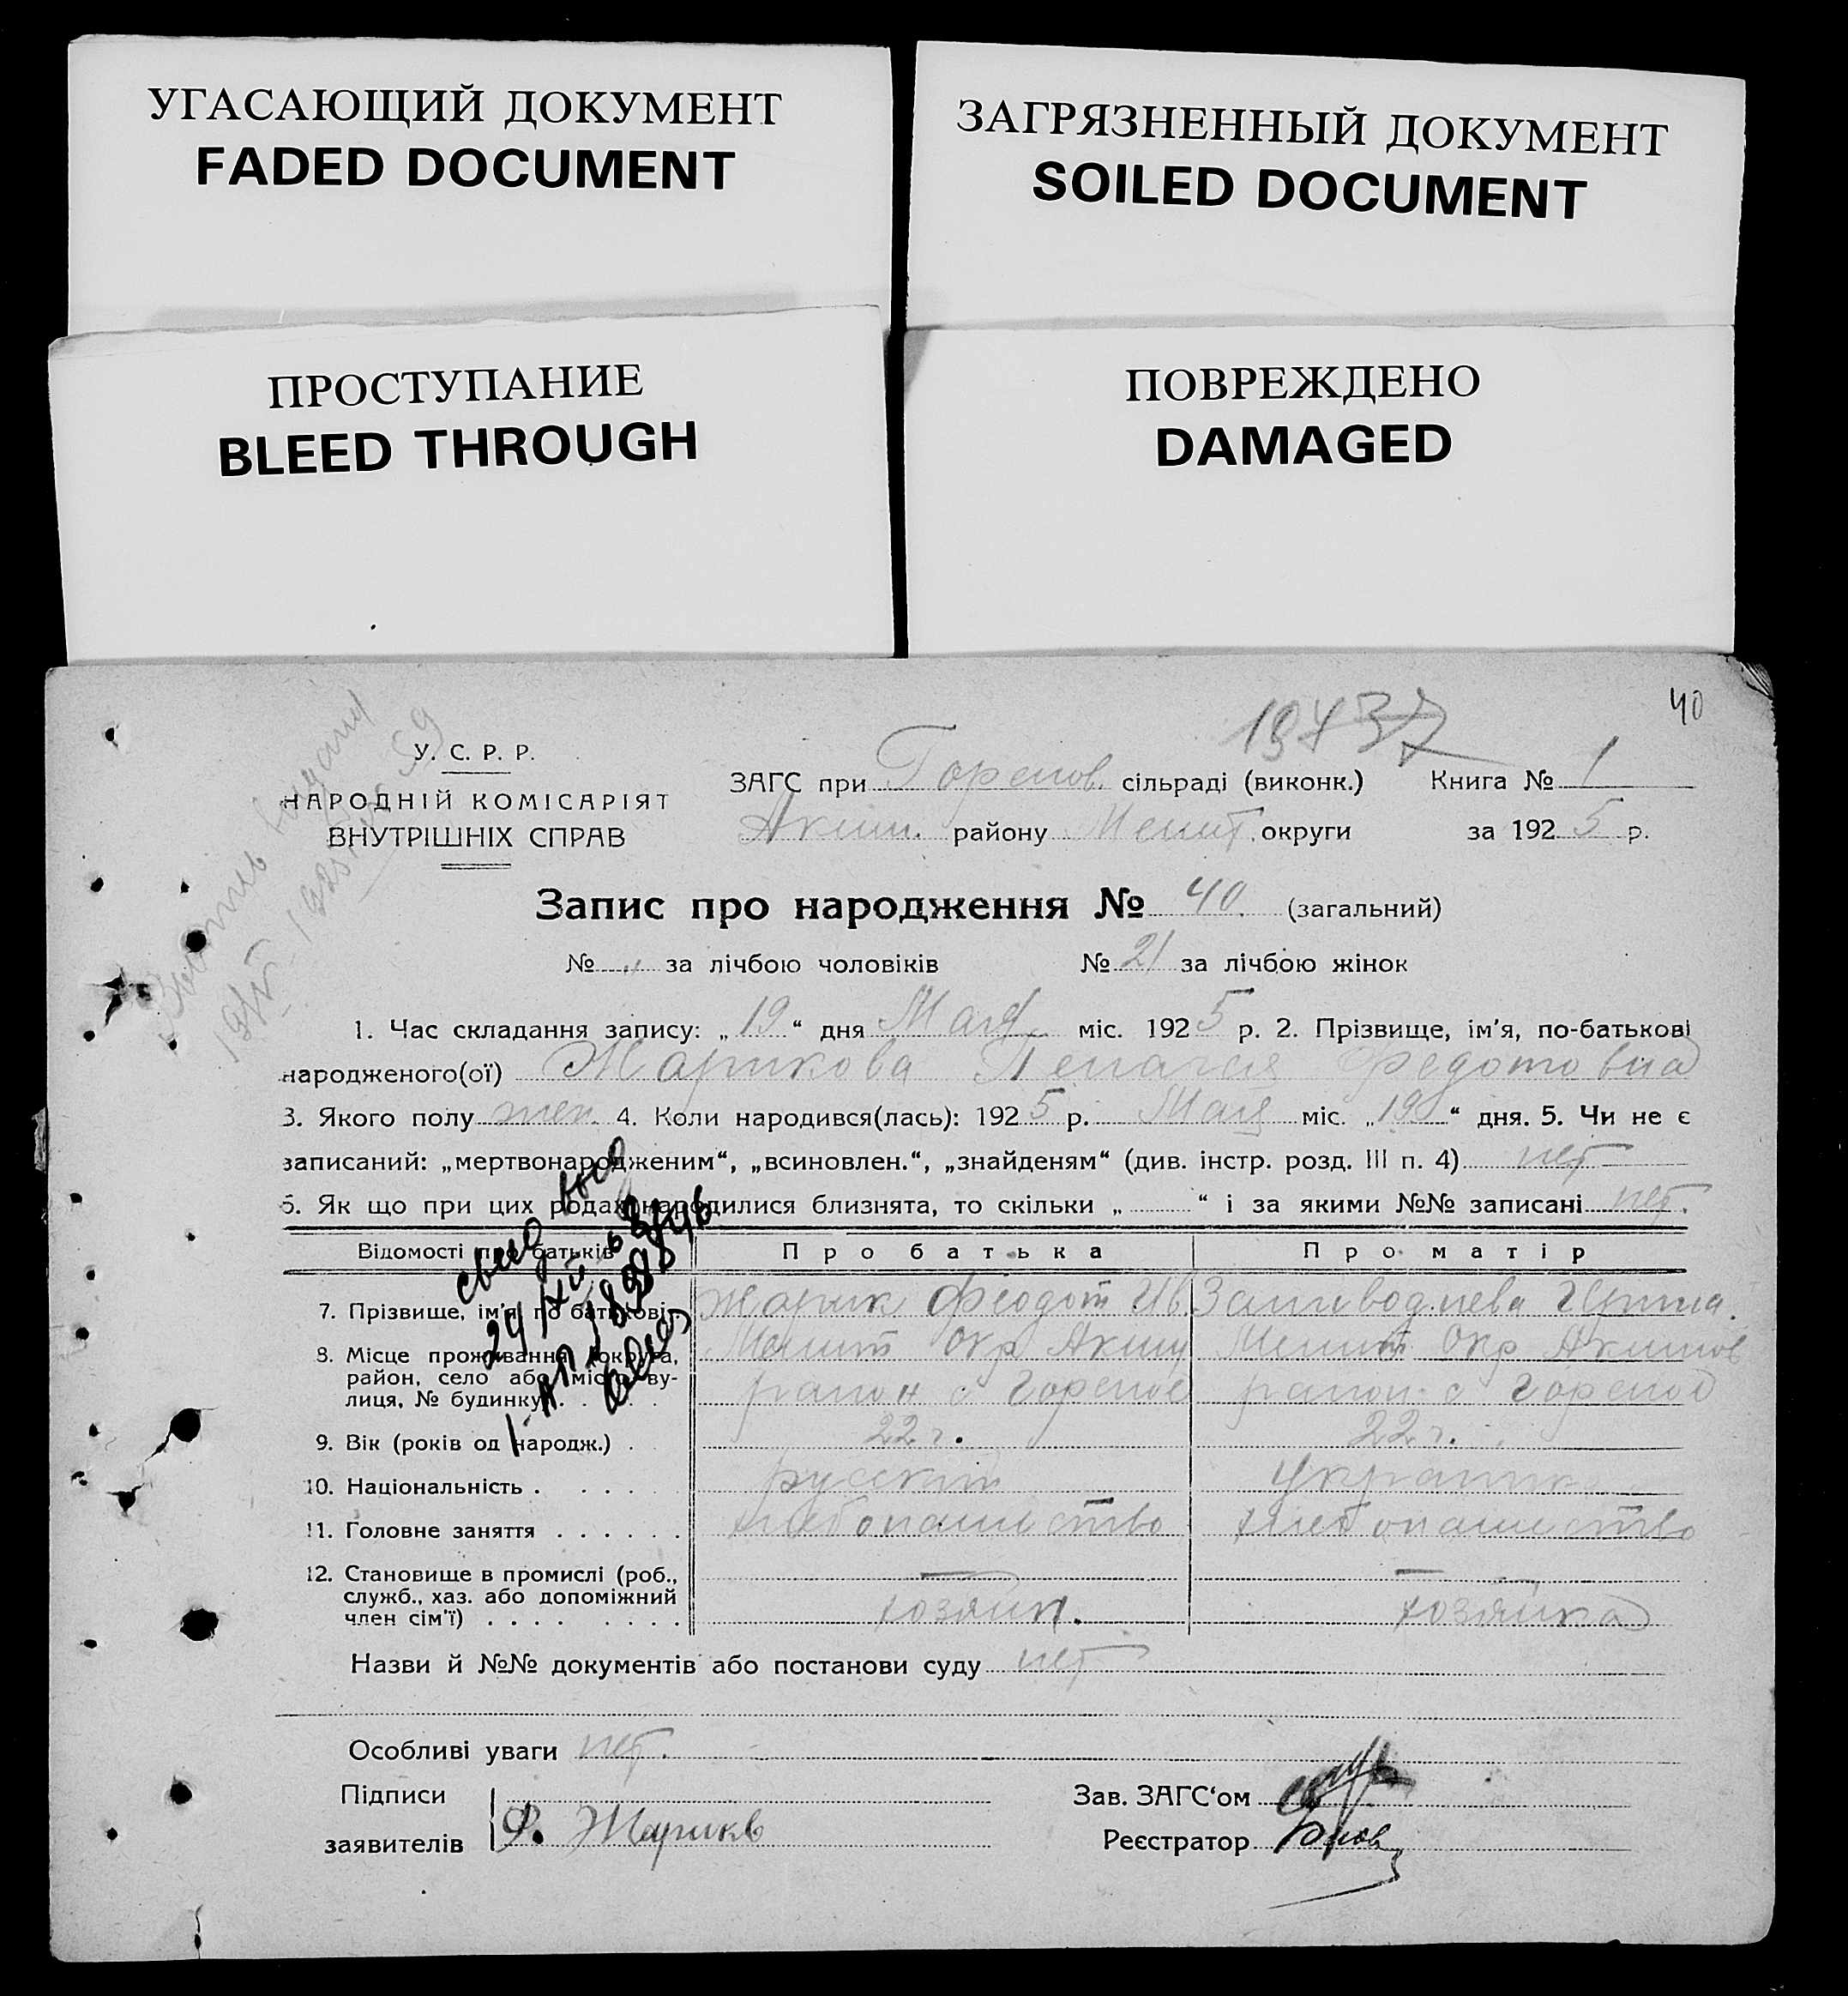 УГАСАЮЩИЙ ДОКУМЕНТ
FADED DOCUMENT
ЗАГРЯЗНЕННЫЙ ДОКУМЕНТ
SOILED DOCUMENT
ПРОСТУПАНИЕ
BLEED THROUGH
ПОВРЕЖДЕНО
DAMAGED
40
19437
У. С. Р. Р.
НАРОДНІЙ КОМІСАРІЯТ
ВНУТРІШНІХ СПРАВ
ЗАГС при Горенов. сільраді (виконк.) Книга № 1
Аким. району Мелит. округи за 1925 р.
Запис про народження № 40. (загальний)
№ „ за лічбою чоловіків № 21 за лічбою жінок
1. Час складання запису: „19“ дня Мая міс. 1925 р. 2. Прізвище, ім'я, по-батькові
народженого(ої) Жарикова Пелагея Федотовна
3. Якого полу жен. 4. Коли народився(лась): 1925 р. Мая міс. „19“ дня. 5. Чи не є
записаний: „мертвонародженим“, „всиновлен.“, „знайденям“ (див. інстр. розд. III п. 4) нет
6. Як що при цих родах народилися близнята, то скільки „ “ і за якими №№ записані нет.
Відомості про батьків Про батька Про матір
7. Прізвище, ім'я, по батькові Жарик Феодот Ив. Заливоднева Ирина.
8. Місце проживання (округа, Мелит Окр Аким Мелит Окр Акимов
район, село або місто, ву- район с Горелое район с Горелое
лиця, № будинку) . . . .
9. Вік (років од народж.) . 22 г. 22 г.
10. Національність . . . . . русский украинк
11. Головне заняття . . . . . . хлебопашество хлебопашество
12. Становище в промислі (роб., — —
служб., хаз. або допоміжний
член сім'ї) . . . . . . . . хозяин. хозяйка
Назви й №№ документів або постанови суду нет
Особливі уваги нет.
Підписи
заявителів Ф. Жарикв
Зав. ЗАГС'ом
Реєстратор